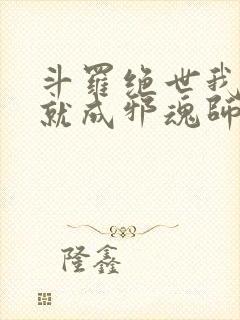 斗羅绝世我
就成邪魂師
隆鑫